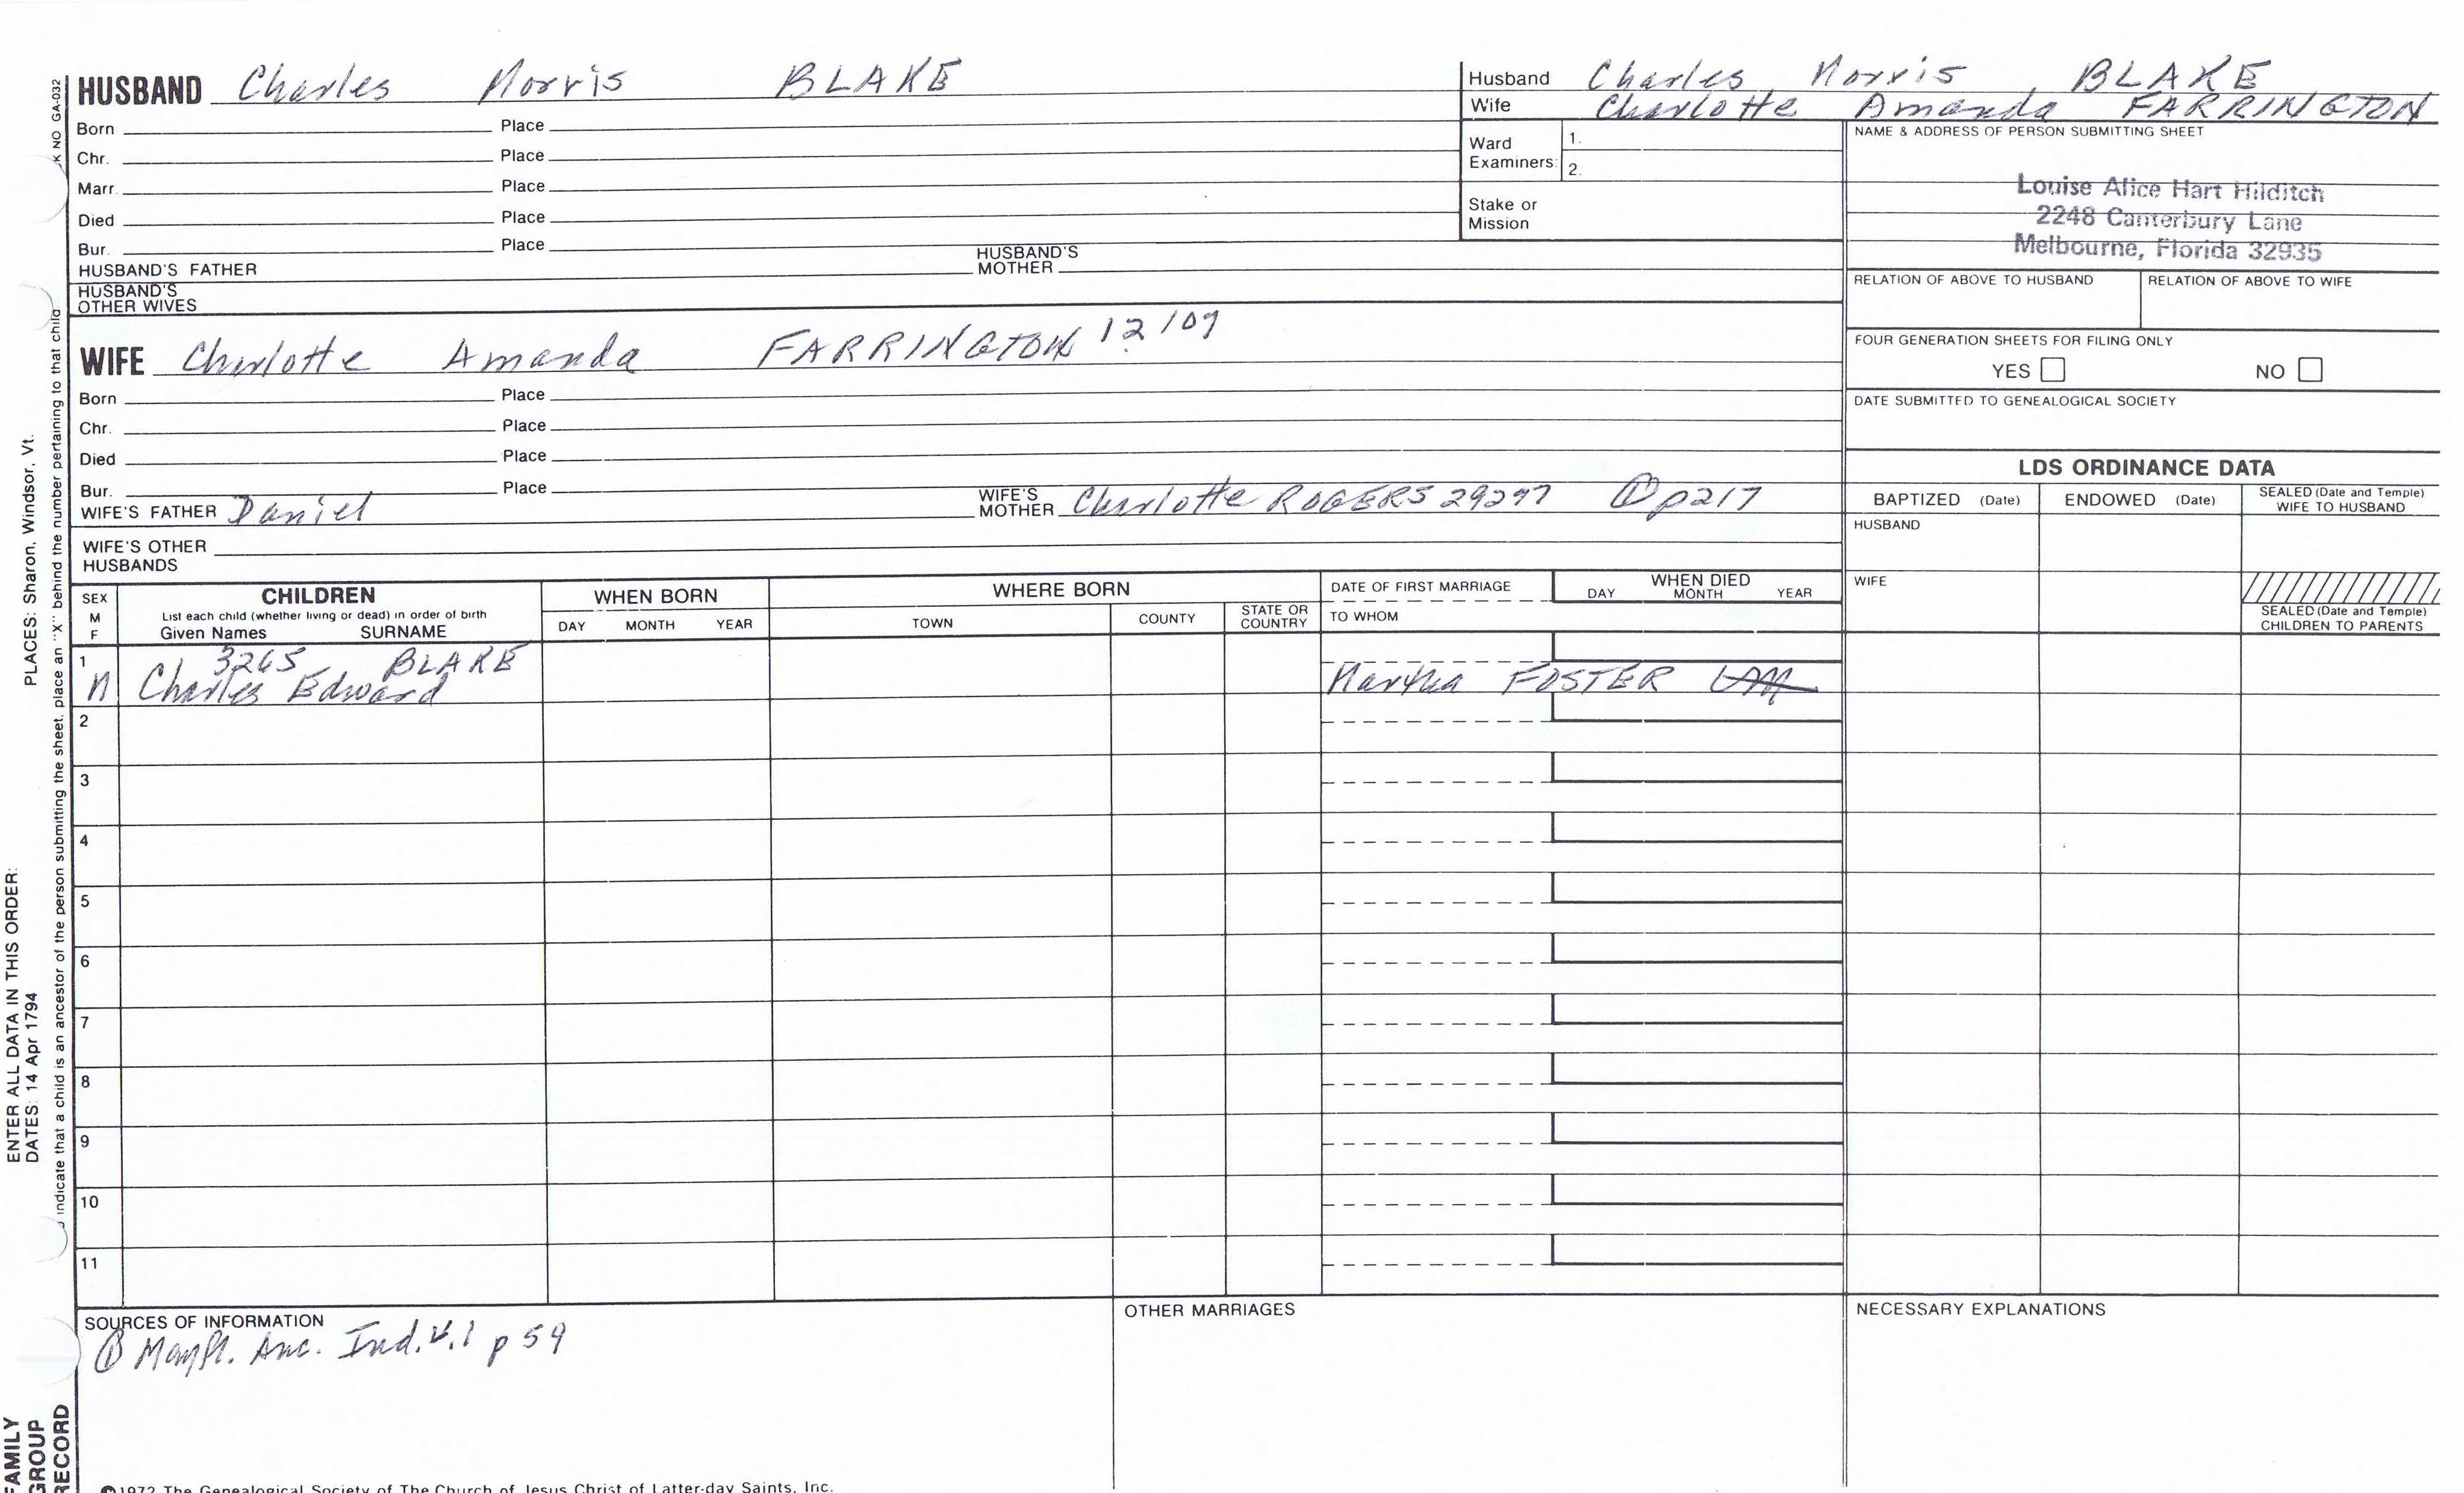 HUSBAND Charles Morris BLAKE
Born Place
Chr. Place
Marr. Place
Died Place
Bur. Place
HUSBAND'S FATHER HUSBAND'S MOTHER
HUSBAND'S OTHER WIVES
Husband Charles Morris BLAKE
Wife Charlotte Amanda FARRINGTON
Ward Examiners: 1.
2.
Stake or Mission
NAME & ADDRESS OF PERSON SUBMITTING SHEET
Louise Alice Hart Hilditch
2248 Canterbury Lane
Melbourne, Florida 32935
RELATION OF ABOVE TO HUSBAND RELATION OF ABOVE TO WIFE
FOUR GENERATION SHEETS FOR FILING ONLY
YES NO
DATE SUBMITTED TO GENEALOGICAL SOCIETY
WIFE Charlotte Amanda FARRINGTON
Born Place
Chr. Place
Died Place
Bur. Place
WIFE'S FATHER Daniel WIFE'S MOTHER Charlotte ROGERS 29297 ① p217
WIFE'S OTHER HUSBANDS
LDS ORDINANCE DATA
BAPTIZED (Date) ENDOWED (Date) SEALED (Date and Temple) WIFE TO HUSBAND
HUSBAND
WIFE
SEALED (Date and Temple) CHILDREN TO PARENTS
SEX M F
CHILDREN
List each child (whether living or dead) in order of birth
Given Names SURNAME
WHEN BORN
DAY MONTH YEAR
WHERE BORN
TOWN COUNTY STATE OR COUNTRY
DATE OF FIRST MARRIAGE
TO WHOM
WHEN DIED
DAY MONTH YEAR
1 3265 BLAKE
M Charles Edward Martha FOSTER
2
3
4
5
6
7
8
9
10
11
SOURCES OF INFORMATION
① Mayfl. Anc. Ind. V.1 p 59
OTHER MARRIAGES
NECESSARY EXPLANATIONS
©1972 The Genealogical Society of The Church of Jesus Christ of Latter-day Saints, Inc.
NO GA-032
indicate that a child is an ancestor of the person submitting the sheet, place an "X" behind the number pertaining to that child
ENTER ALL DATA IN THIS ORDER:
DATES: 14 Apr 1794 PLACES: Sharon, Windsor, Vt.
FAMILY
GROUP
RECORD